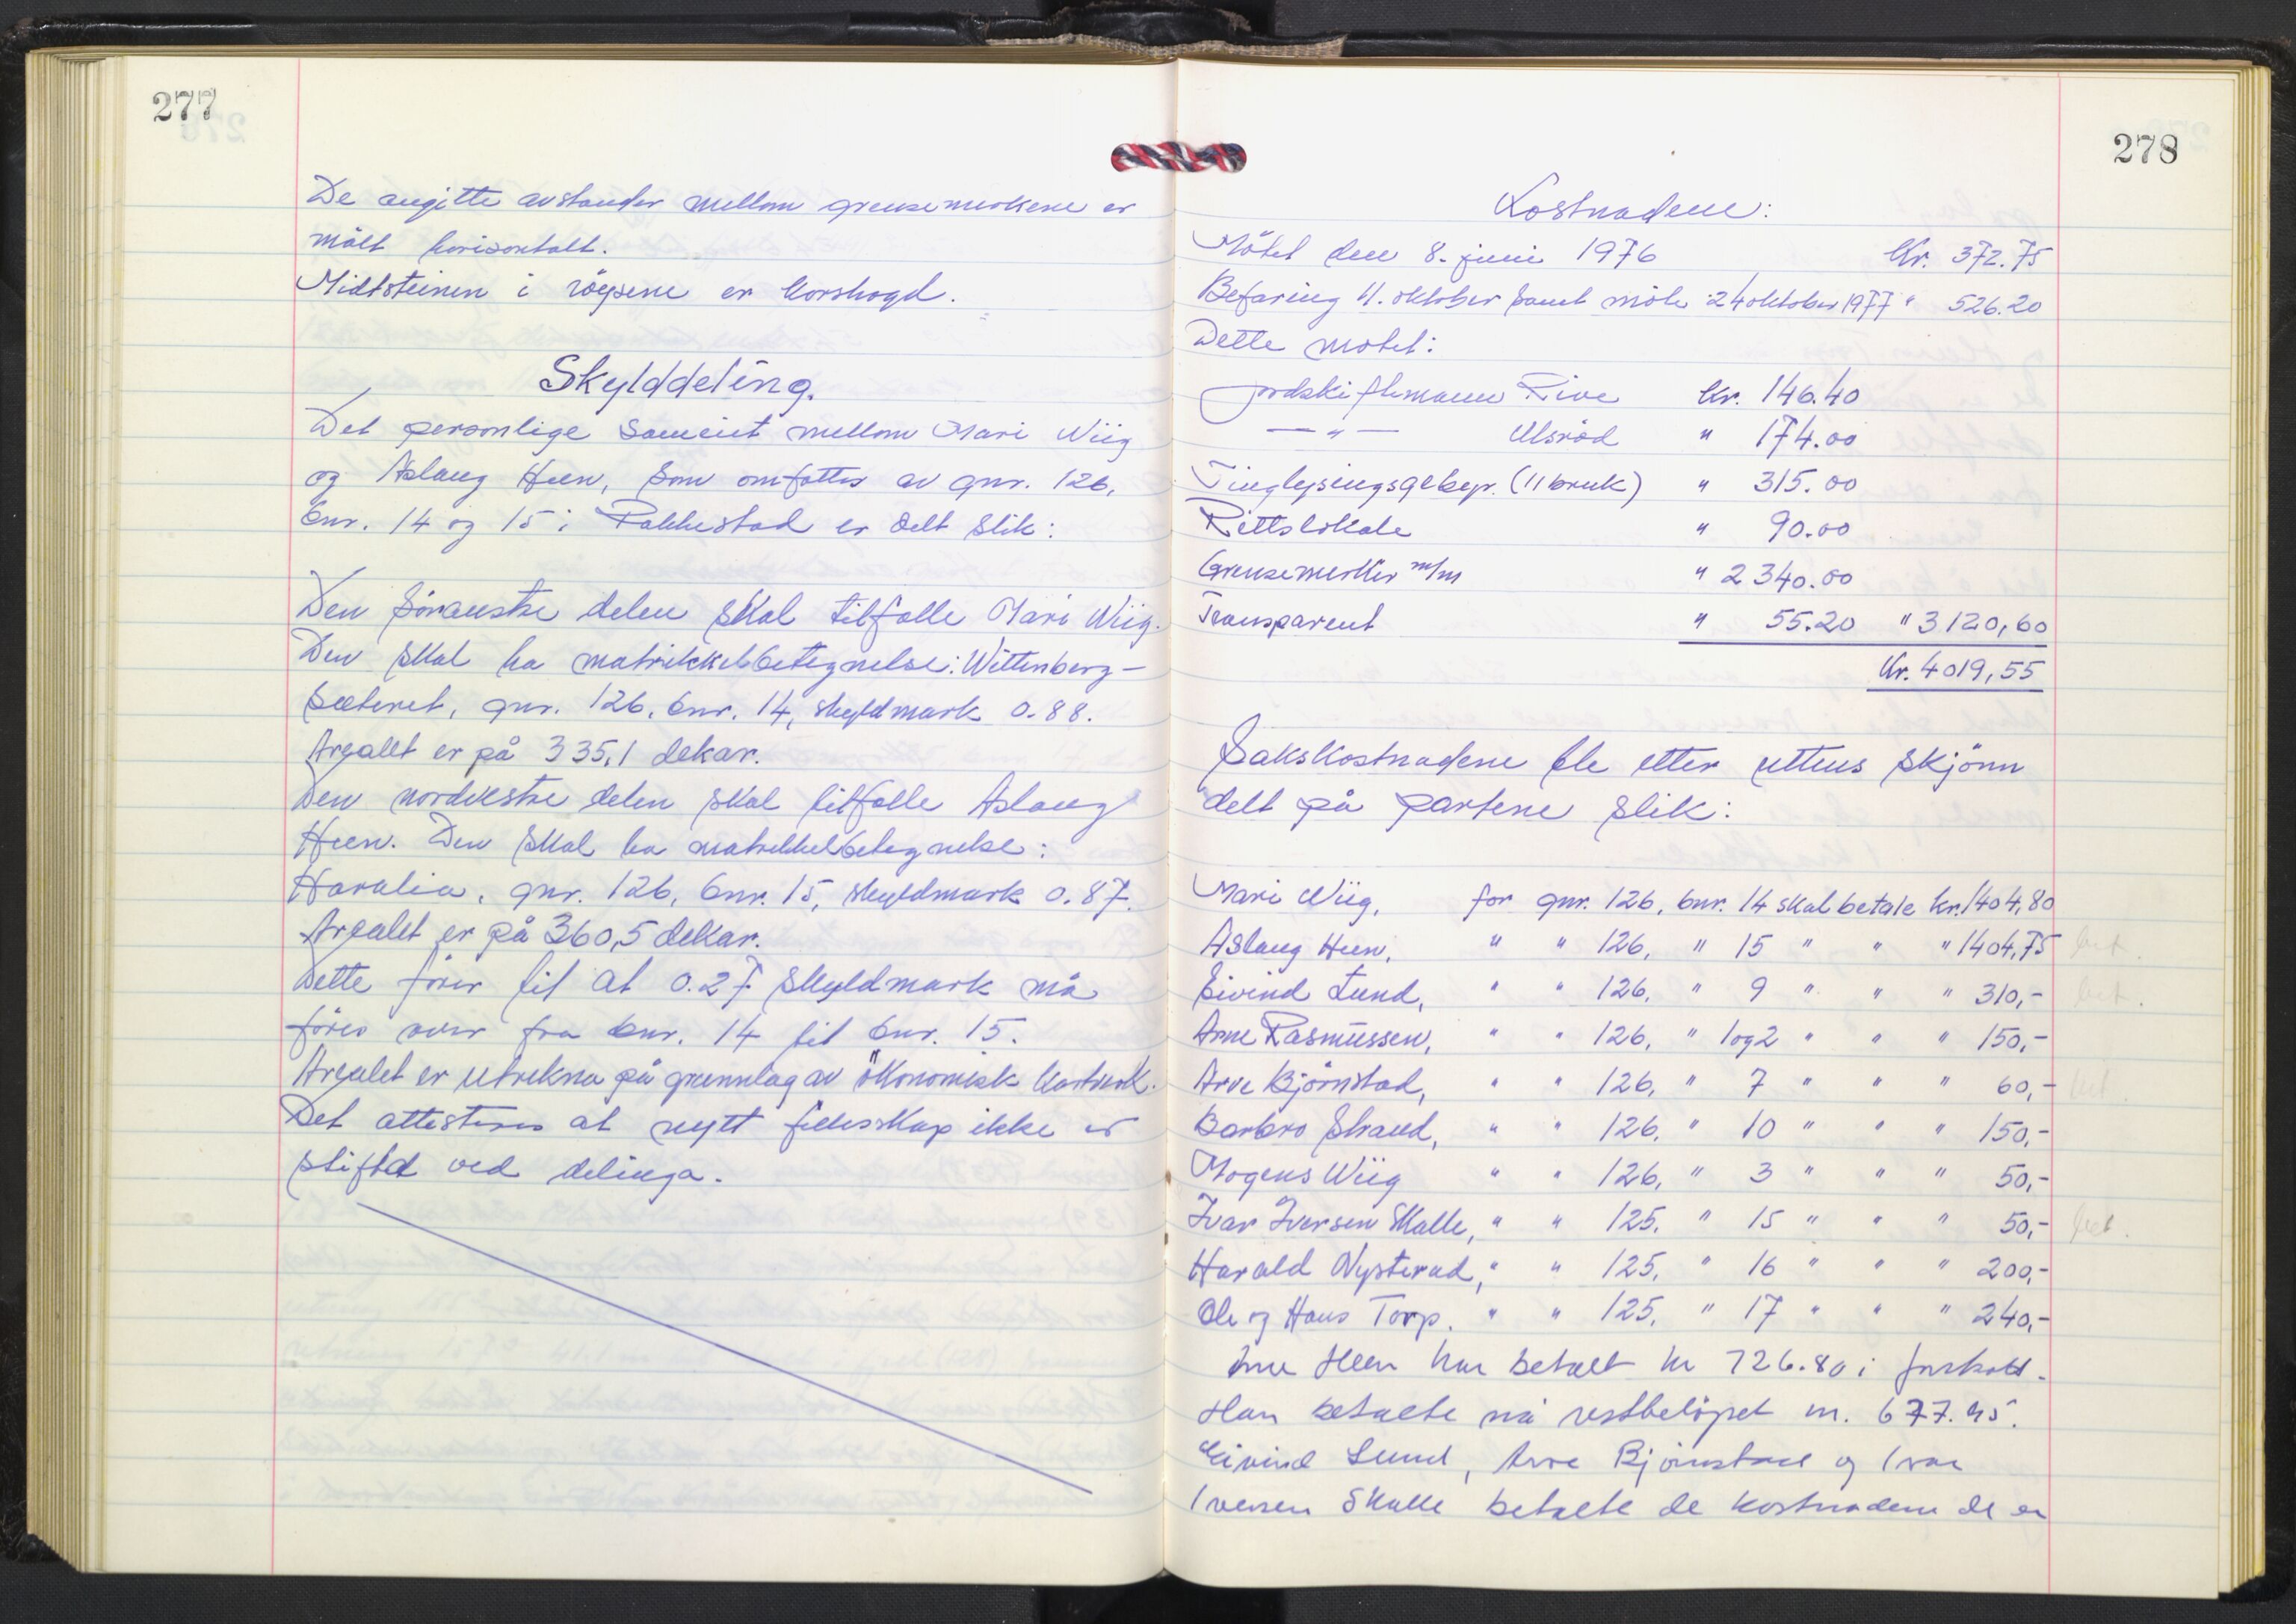 277
De angitte avstander mellom grensemerkene er
målt horisontalt.
Midtsteinen i röysene er korshogd.
Skylddeling.
Det personlige sameiet mellom Mari Wiig
og Aslaug Heen, som omfattes av gnr. 126,
bnr. 14 og 15 i Rakkestad er delt slik:
Den söraustre delen skal tilfalle Mari Wiig.
Den skal ha matrikkelbetegnelse: Wittenberg-
sæteret, gnr. 126, bnr. 14, skyldmark 0.88.
Arealet er på 335,1 dekar.
Den nordvestre delen skal tilfalle Aslaug
Heen. Den skal ha matrikkelbetegnelse:
Haralia, gnr. 126, bnr. 15, skyldmark 0.87.
Arealet er på 360,5 dekar.
Dette förer til at 0.27 skyldmark må
föres over fra bnr. 14 til bnr. 15.
Arealet er utrekna på grunnlag av ökonomisk kartverk.
Det attesteres at nytt fellesskap ikke er
stiftet ved delinga.
278
Kostnadene:
Mötet den 8. juni 1976 Kr. 372.75
Befaring 4. oktober samt möte 24 oktober 1977 " 526.20
Dette motet:
Jordskiftemann Rive kr. 146.40
— " — Ulsröd " 174.00
Tinglysingsgebyr. (11 bruk) " 315.00
Rettslokale " 90.00
Grensemerker m/m " 2340.00
Transparent " 55.20 " 3120,60
Kr. 4019,55
Sakskostnadene ble etter rettens skjönn
delt på partene slik:
Mari Wiig, for gnr. 126, bnr. 14 skal betale kr. 1404,80
Aslaug Heen, " " 126, " 15 " " " 1404,75 bet.
Eivind Lund, " " 126, " 9 " " " 310,- bet.
Arne Rasmussen, " " 126, " 1 og 2 " " " 150,-
Arve Björnstad, " " 126, " 7 " " " 60,- bet.
Barbro Strand, " " 126, " 10 " " " 150,-
Mogens Wiig " " 126, " 3 " " " 50,-
Ivar Iversen Skalle, " " 125, " 15 " " " 50,- bet.
Harald Nysterud, " " 125, " 16 " " " 200,-
Ole og Hans Torp. " " 125, " 17 " " " 240,-
Heen har betalt kr 726.80 i forskott.
Han betalte nå restbelöpet kr. 677.95.
Eivind Lund, Arve Björnstad og Ivar
Iversen Skalle betalte de kostnadene de er